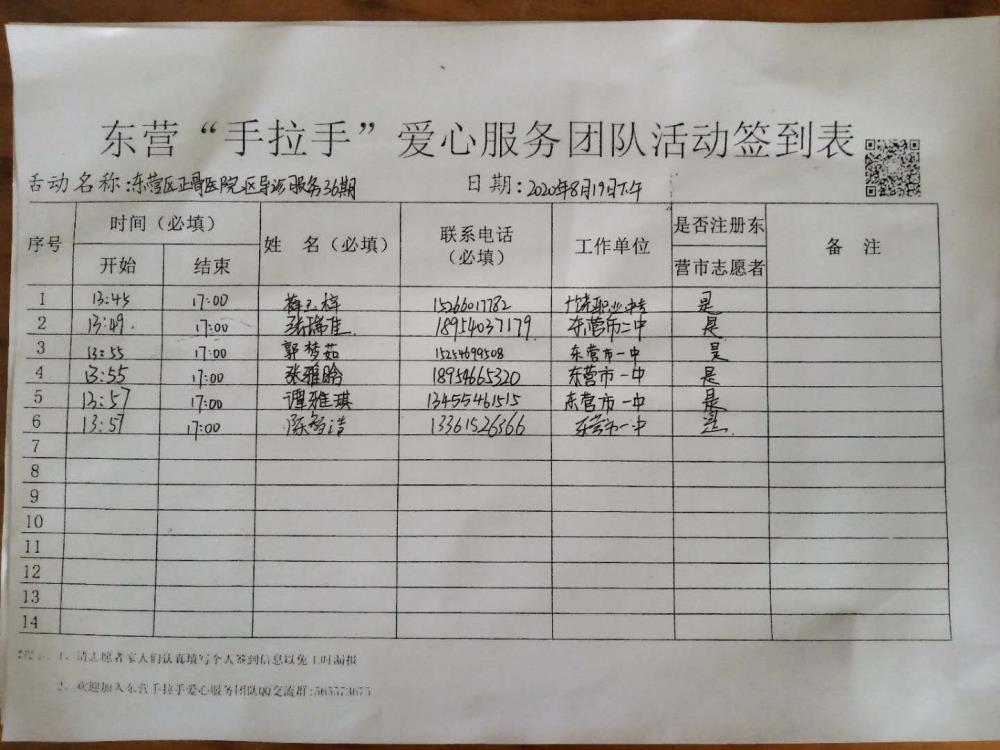 东营“手拉手”爱心服务团队活动签到表
活动名称:东营区正骨医院区导诊服务36期 日期:2020年8月19日下午
序号 时间（必填） 姓 名（必填） 联系电话（必填） 工作单位 是否注册东营市志愿者 备 注
开始 结束
1 13:45 17:00 薛玉梓 15266017782 职业中专 是
2 13:49 17:00 张瑞佳 18954037179 东营市二中 是
3 13:55 17:00 郭梦茹 15254699508 东营市一中 是
4 13:55 17:00 张雅晗 18954665320 东营市一中 是
5 13:57 17:00 谭雅琪 13455461515 东营市一中 是
6 13:57 17:00 陈 洁 13361526366 东营市一中 是
7
8
9
10
11
12
13
14
1、请志愿者家人们认真填写个人签到信息以免工时漏报
2、欢迎加入东营手拉手爱心服务团队QQ交流群:565573675